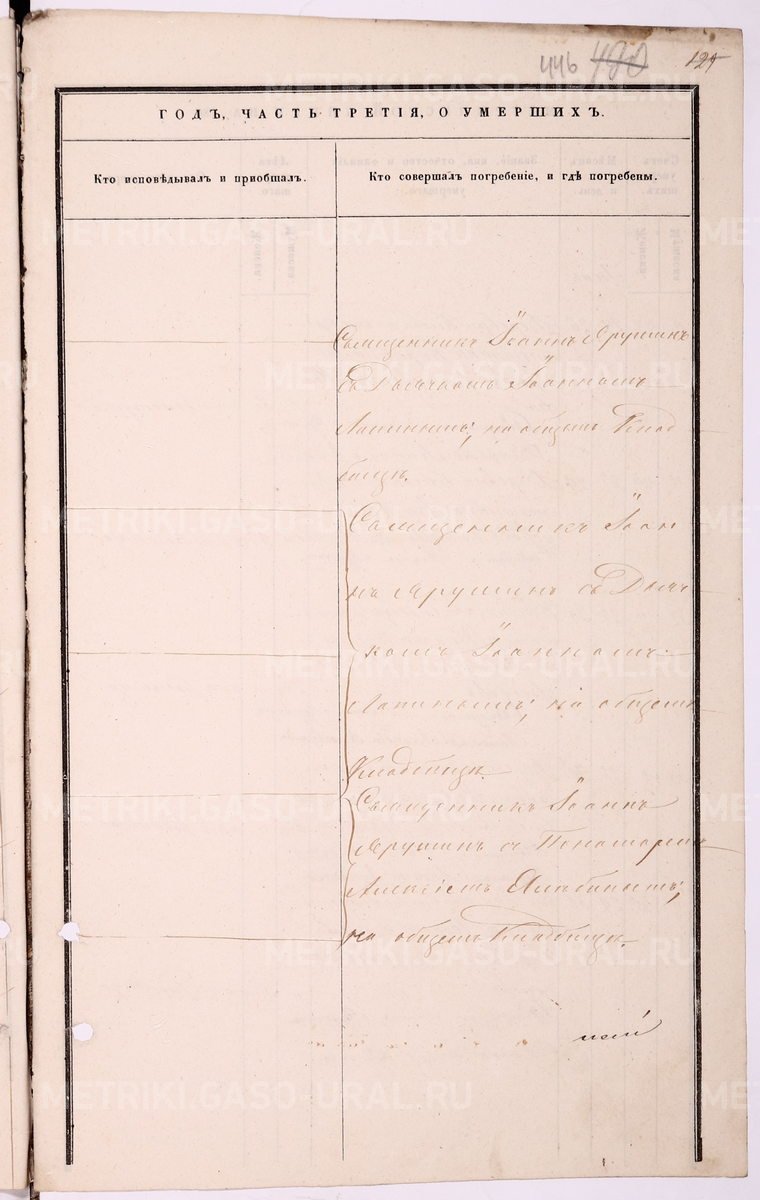 446 490 124
ГОДЪ, ЧАСТЬ ТРЕТІЯ, О УМЕРШИХЪ.
Кто исповѣдывалъ и пріобщалъ.
Кто совершалъ погребеніе, и гдѣ погребены.
Священникъ Іоаннъ Ярушинъ
съ Дьячкомъ Іоанномъ
Лапинымъ; на общемъ Клад
бищѣ.
Священникъ Іоан
нъ Ярушинъ съ Дьяч
комъ Іоанномъ
Лапинымъ; на общемъ
Кладбищѣ.
Священникъ Іоаннъ
Ярушинъ съ Пономаремъ
Алексіемъ
на общемъ Кладбищѣ.
METRIKI.GASO-URAL.RU